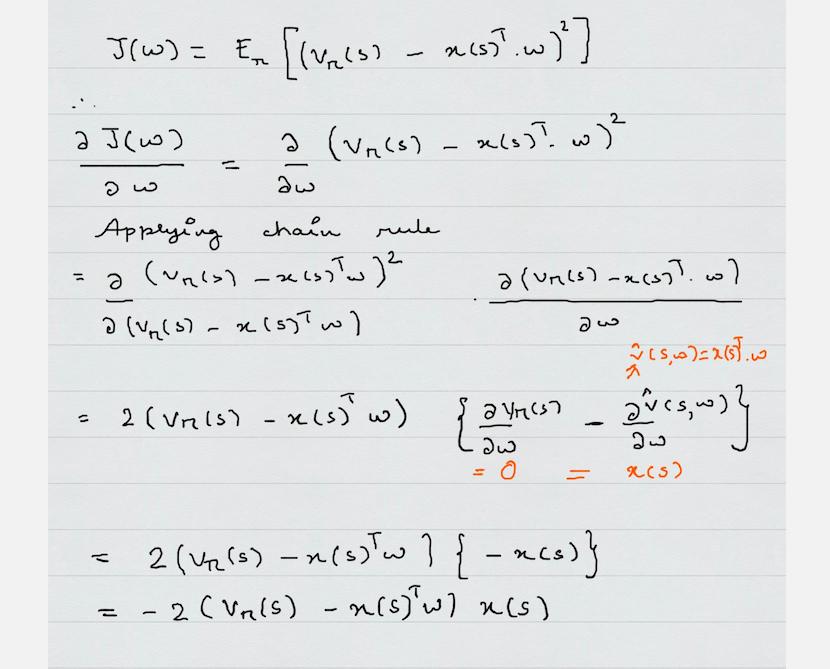 J(w) = Eπ [(vπ(s) - x(s)ᵀ.w)²]
∴
∂ J(w) / ∂w = ∂/∂w (vπ(s) - x(s)ᵀ. w)²
Applying chain rule
= ∂ (vπ(s) - x(s)ᵀw)² / ∂(vπ(s) - x(s)ᵀ w) . ∂(vπ(s) - x(s)ᵀ. w) / ∂w
v̂(s,w) = x(s)ᵀ.w
= 2(vπ(s) - x(s)ᵀ w) { ∂vπ(s)/∂w - ∂v̂(s,w)/∂w }
= 0 = x(s)
= 2(vπ(s) - x(s)ᵀw) { - x(s)}
= - 2 (vπ(s) - x(s)ᵀw) x(s)